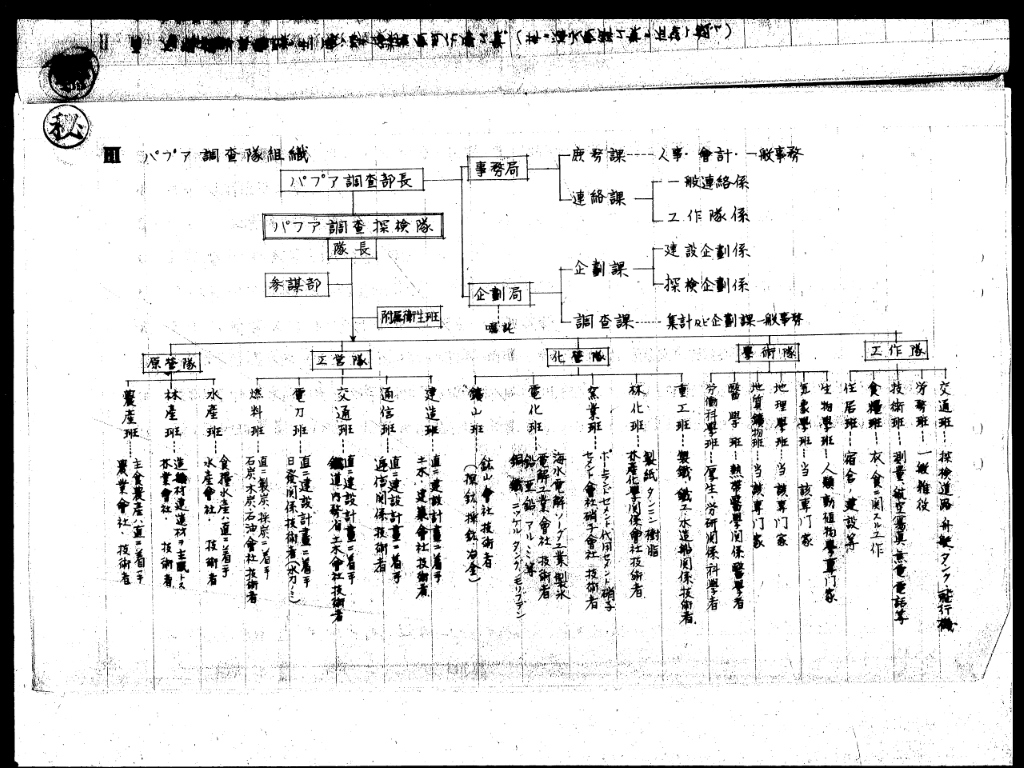 秘
III パプア調査隊組織
パプア調査部長
パプア調査探検隊
隊長
参謀部
附属衛生班
事務局
庶務課 人事・會計・一般事務
連絡課
一般連絡係
工作隊係
企劃局
嘱託
企劃課
建設企劃係
探検企劃係
調査課 集計及ビ企劃課一般事務
原營隊
工營隊
化營隊
學術隊
工作隊
農産班
主食農産ハ直ニ着手
農業會社、技術者
林産班
林業會社、技術者
水産班
食糧水産ハ直ニ着手
水産會社、技術者
燃料班
直ニ製炭、採炭ニ着手
石炭木炭石油會社技術者
電力班
直ニ建設計畫ニ着手
日發関係技術者(水力ニ)
交通班
直ニ建設計畫ニ着手
鐵道内務省土木會社技術者
通信班
直ニ建設計畫ニ着手
逓信関係技術者
建造班
直ニ建設計畫ニ着手
土木、建築會社技術者
鑛山班
鉱山會社技術者
(探鉱、採鉱、冶金)
電化班
海水電解、ソーダ工業、製氷
電解工業會社、技術者
鉛、亜鉛、アルミ等
銅、鐵、ニッケル、タングステン、モリブデン
窯業班
ポートランドセメント、代用セメント、硝子
セメント會社、硝子會社、技術者
林化班
製紙、タンニン、樹脂
林産化學関係會社技術者
重工班
製鐵、鐵工、水造船関係技術者
労働科學班
厚生、労研関係科學者
醫學班
熱帯醫學関係醫學者
地質鑛物班
当該専門家
地理學班
当該専門家
気象學班
当該専門家
生物學班
人類動植物學専門家
住居班
宿舎、建設等
食糧班
衣食ニ関スル工作
技術班
測量、航空寫真、無電電話等
労務班
一般雑役
交通班
探検道路、舟艇、タンク、飛行機